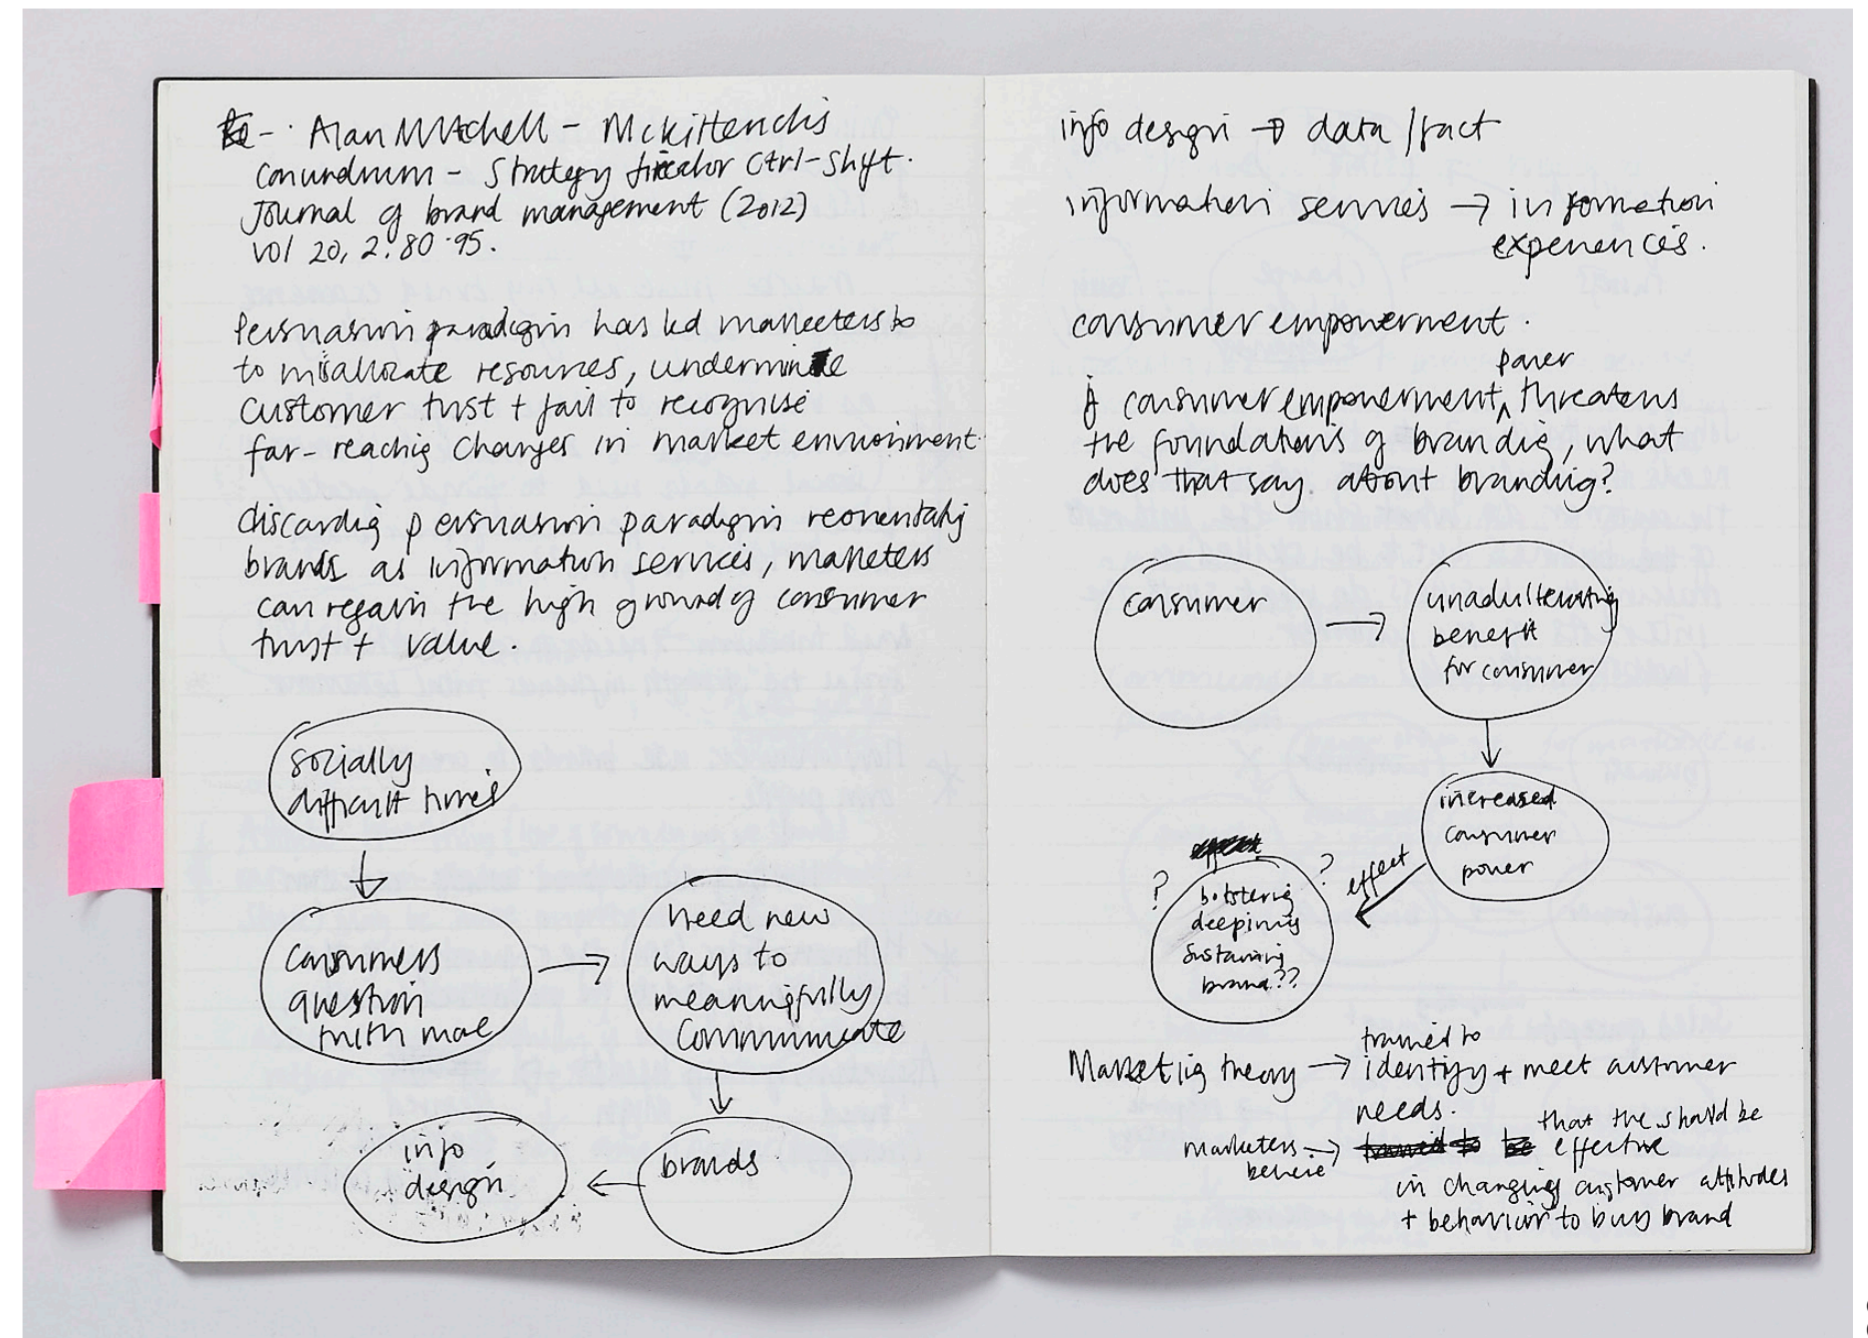 Alan Mitchell - McKittericks
Conundrum - Strategy Director Ctrl-Shift.
Journal of brand management (2012)
vol 20, 2. 80-95.
Persuasion paradigm has led marketers to
to misallocate resources, undermine
customer trust + fail to recognise
far-reaching changes in market environment
discarding persuasion paradigm reorientating
brands as information services, marketers
can regain the high ground of consumer
trust + value.
socially
difficult times
consumers
question
truth more
need new
ways to
meaningfully
communicate
brands
info
design
info design → data / fact
information services → information
experiences.
consumer empowerment.
power
if consumer empowerment ^ threatens
the foundations of branding, what
does that say about branding?
consumer
unadulterating
benefit
for consumer
increased
consumer
power
effect
? ?
bolstering
deepining
sustaining
brand??
trained to
Marketing theory → identify + meet customer
needs.
that the should be
marketers → effective
believe
in changing customer attitudes
+ behavior to buy brand